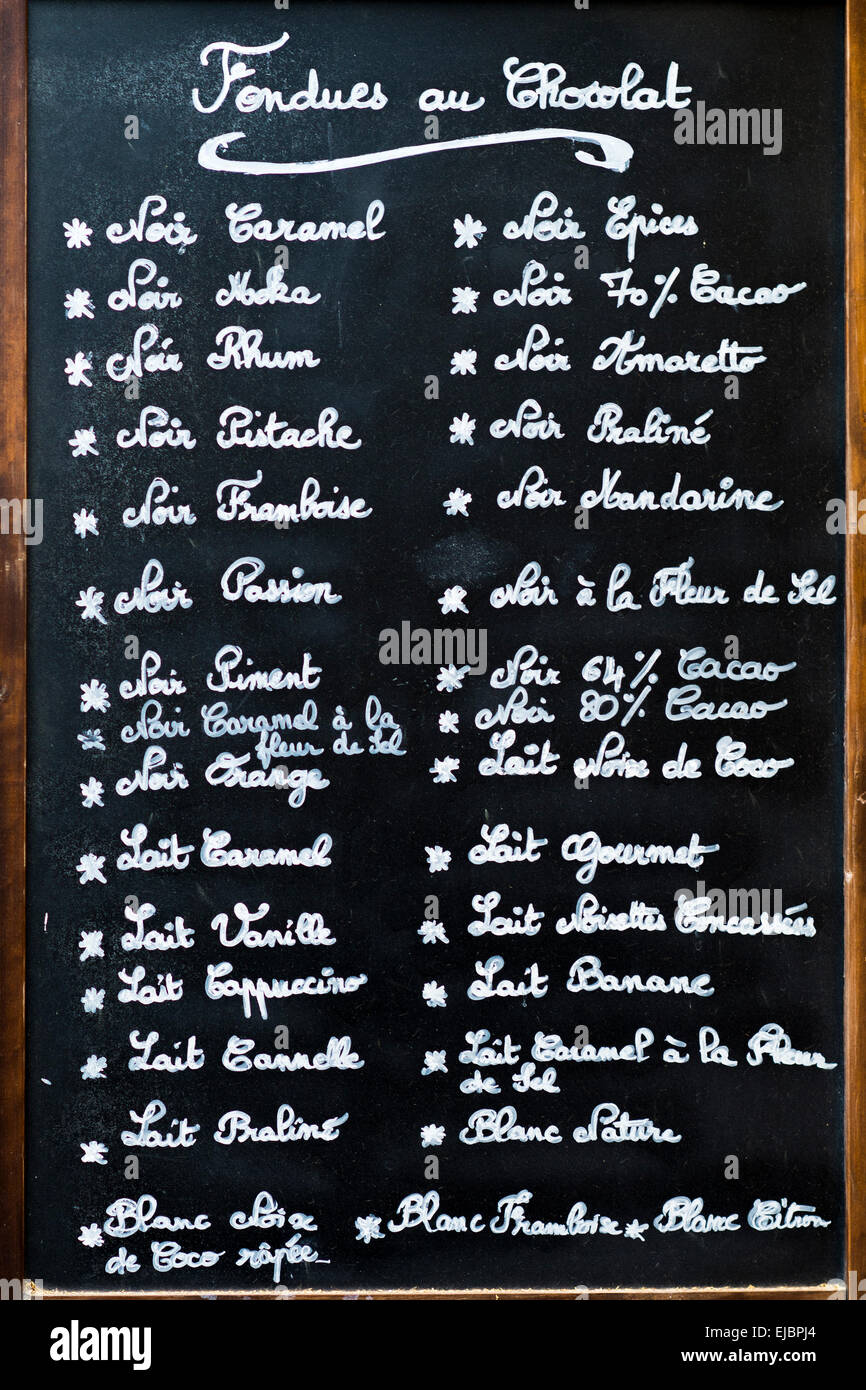 Fondues au Chocolat
* Noir Caramel
* Noir Moka
* Noir Rhum
* Noir Pistache
* Noir Framboise
* Noir Passion
* Noir Piment
* Noir Caramel à la
fleur de Sel
* Noir Orange
* Lait Caramel
* Lait Vanille
* Lait Cappuccino
* Lait Cannelle
* Lait Praliné
* Noir Epices
* Noir 70% Cacao
* Noir Amaretto
* Noir Praliné
* Noir Mandarine
* Noir à la Fleur de Sel
* Noir 64% Cacao
* Noir 80% Cacao
* Lait Noix de Coco
* Lait Gourmet
* Lait Noisettes Concassées
* Lait Banane
* Lait Caramel à la Fleur
de Sel
* Blanc Nature
* Blanc Noix
de Coco râpée
* Blanc Framboise * Blanc Citron
alamy
Image ID: EJBPJ4
www.alamy.com